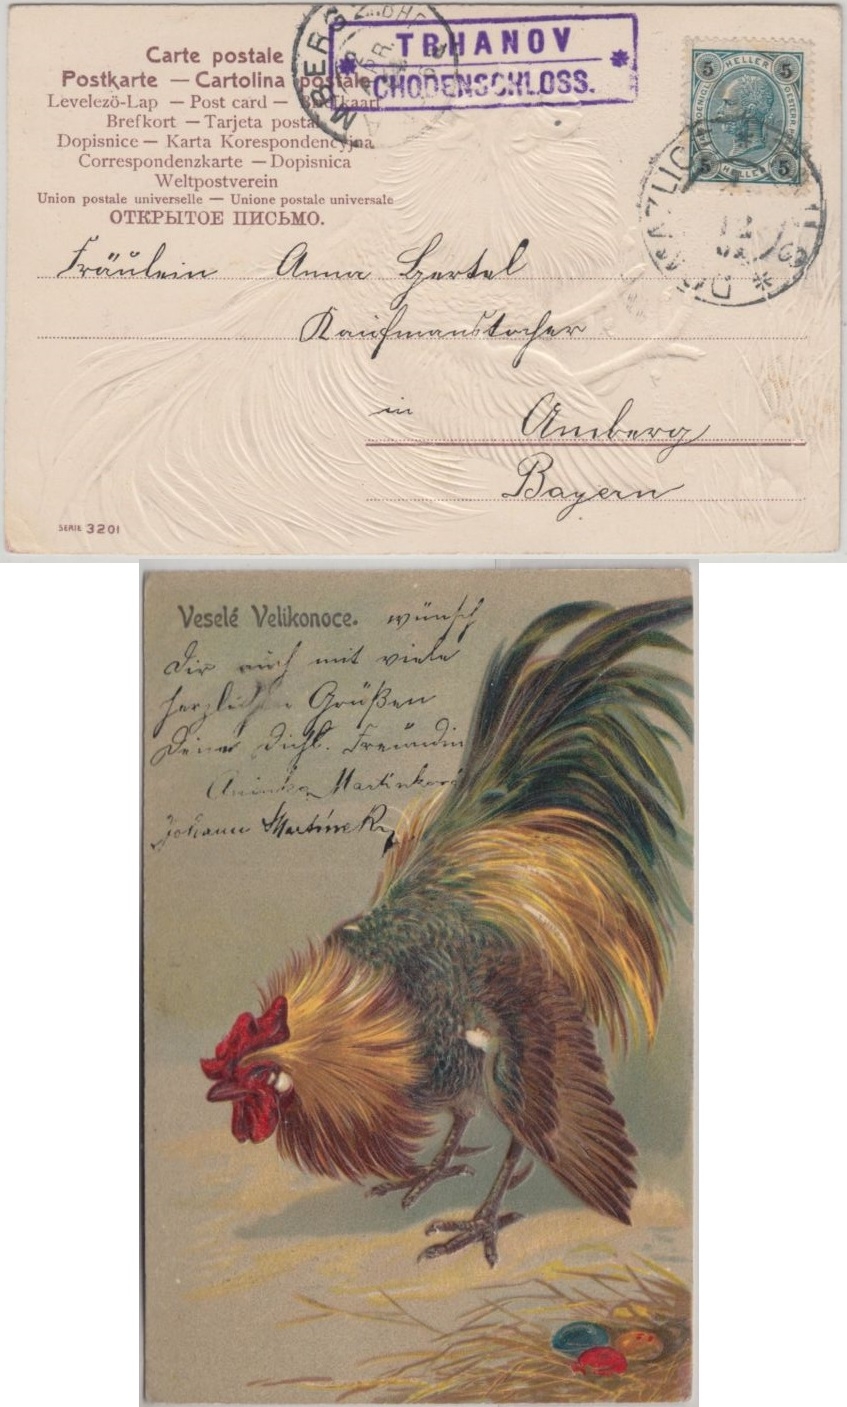 TRHANOV
CHODENSCHLOSS.
AMBERG
Carte postale
Postkarte — Cartolina postale
Levelező-Lap — Post card — Briefkaart
Brefkort — Tarjeta postal
Dopisnice — Karta Korespondencyjna
Correspondenzkarte — Dopisnica
Weltpostverein
Union postale universelle — Unione postale universale
ОТКРЫТОЕ ПИСЬМО.
5 HELLER 5
5 HELLER 5
Fräulein Anna Hertel
Kaufmanstocher
in Amberg
Bayern
SERIE 3201
Veselé Velikonoce. wünsch
Dir auch mit viele
herzlichen Grüßen
Deine Freundin
Martinková
Johann Martinek